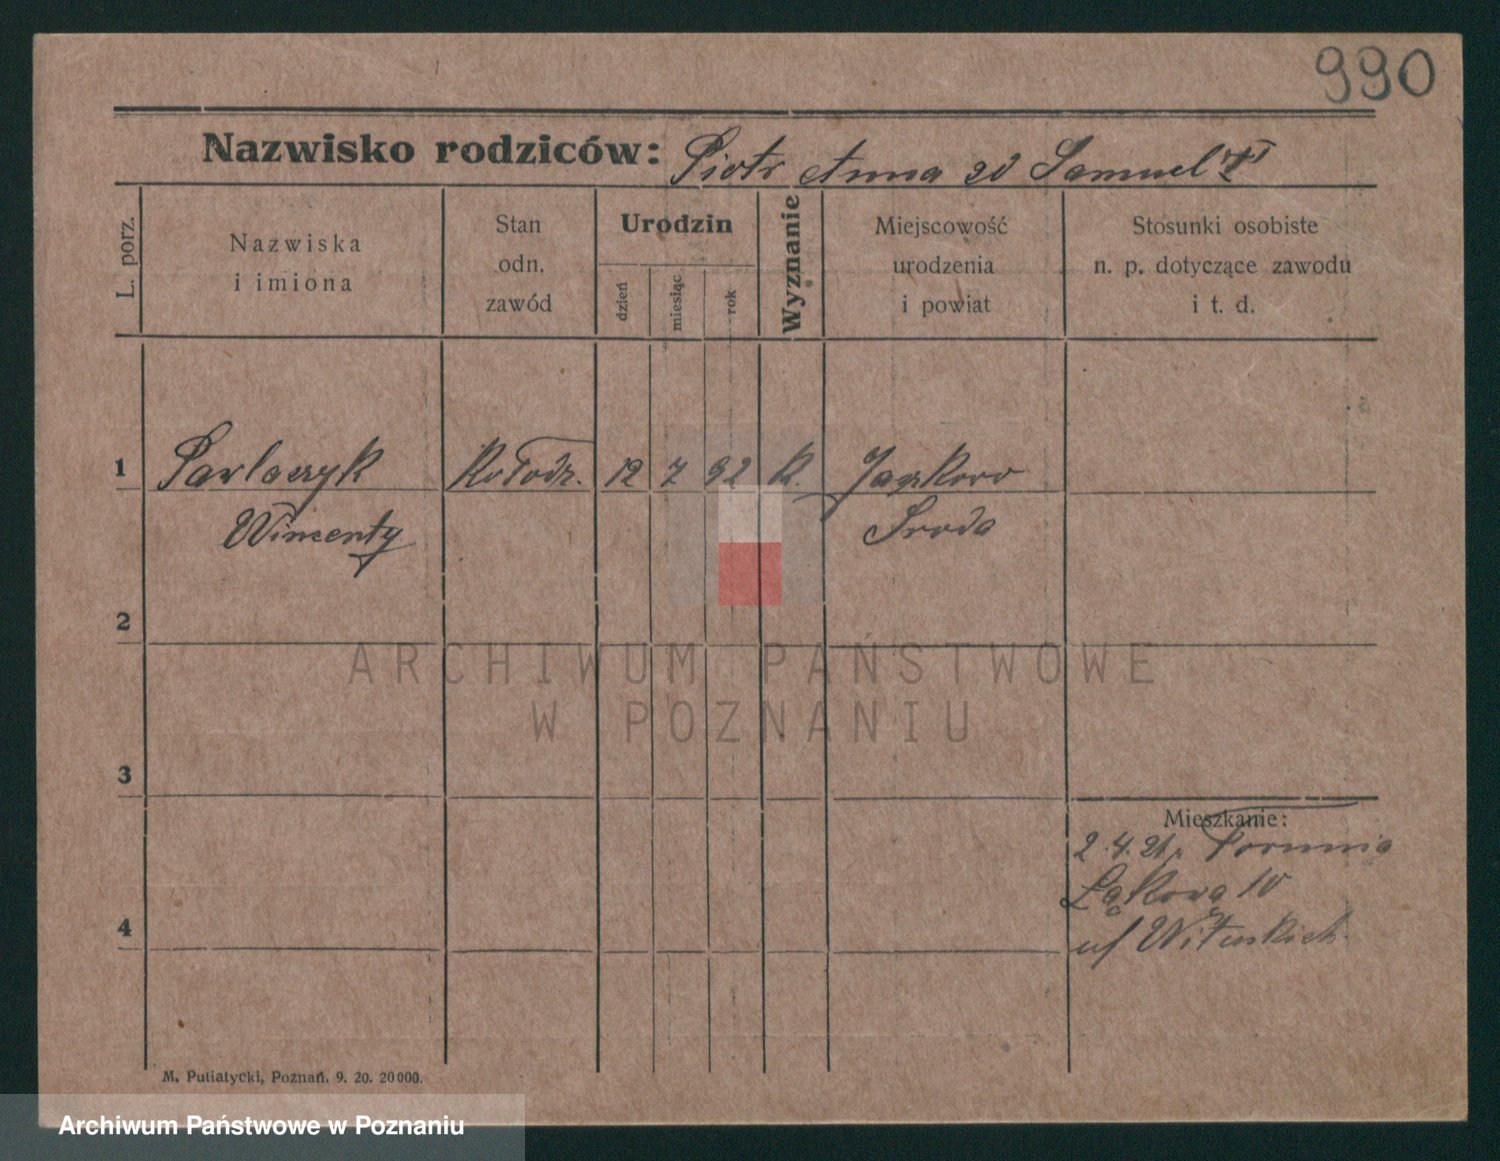 990
Nazwisko rodziców: Piotr Anna zd Samuel
L. porz.
Nazwiska
i imiona
Stan
odn.
zawód
Urodzin
dzień
miesiąc
rok
Wyznanie
Miejscowość
urodzenia
i powiat
Stosunki osobiste
n. p. dotyczące zawodu
i t. d.
1 Pawlaczyk Kołodz. 12 7 92 K. Jaszkowo
Wincenty Środa
2
ARCHIWUM PAŃSTWOWE
W POZNANIU
3
Mieszkanie:
2.4.21
Łąkowa 10
4
M. Putiatycki, Poznań. 9. 20. 20000.
Archiwum Państwowe w Poznaniu